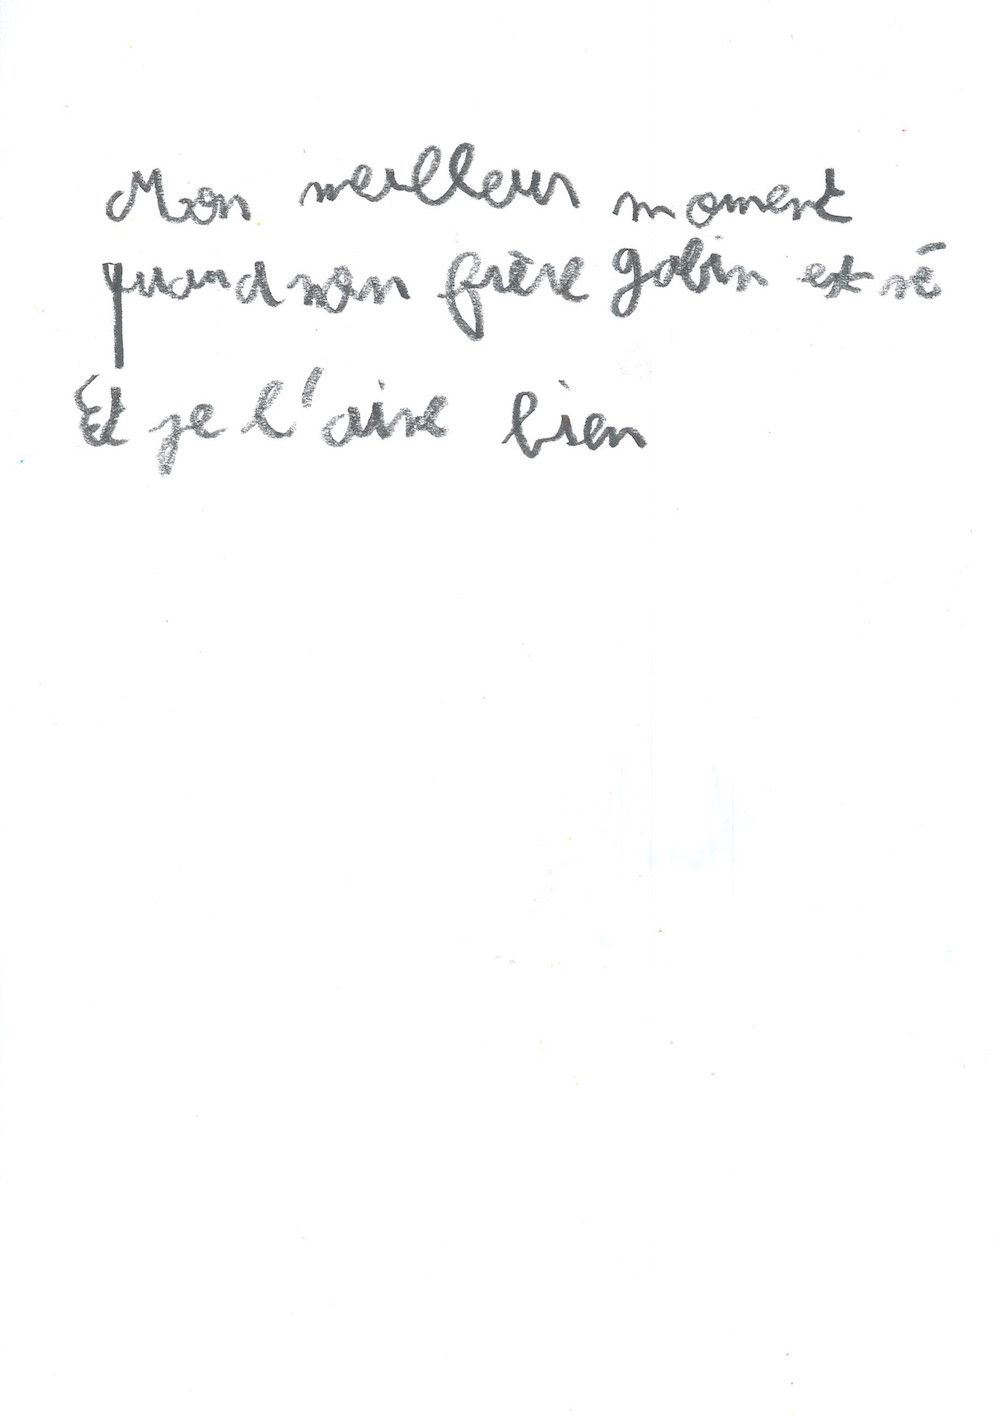 Mon meilleur moment
quand mon frère gabin est né
Et je l'aime bien